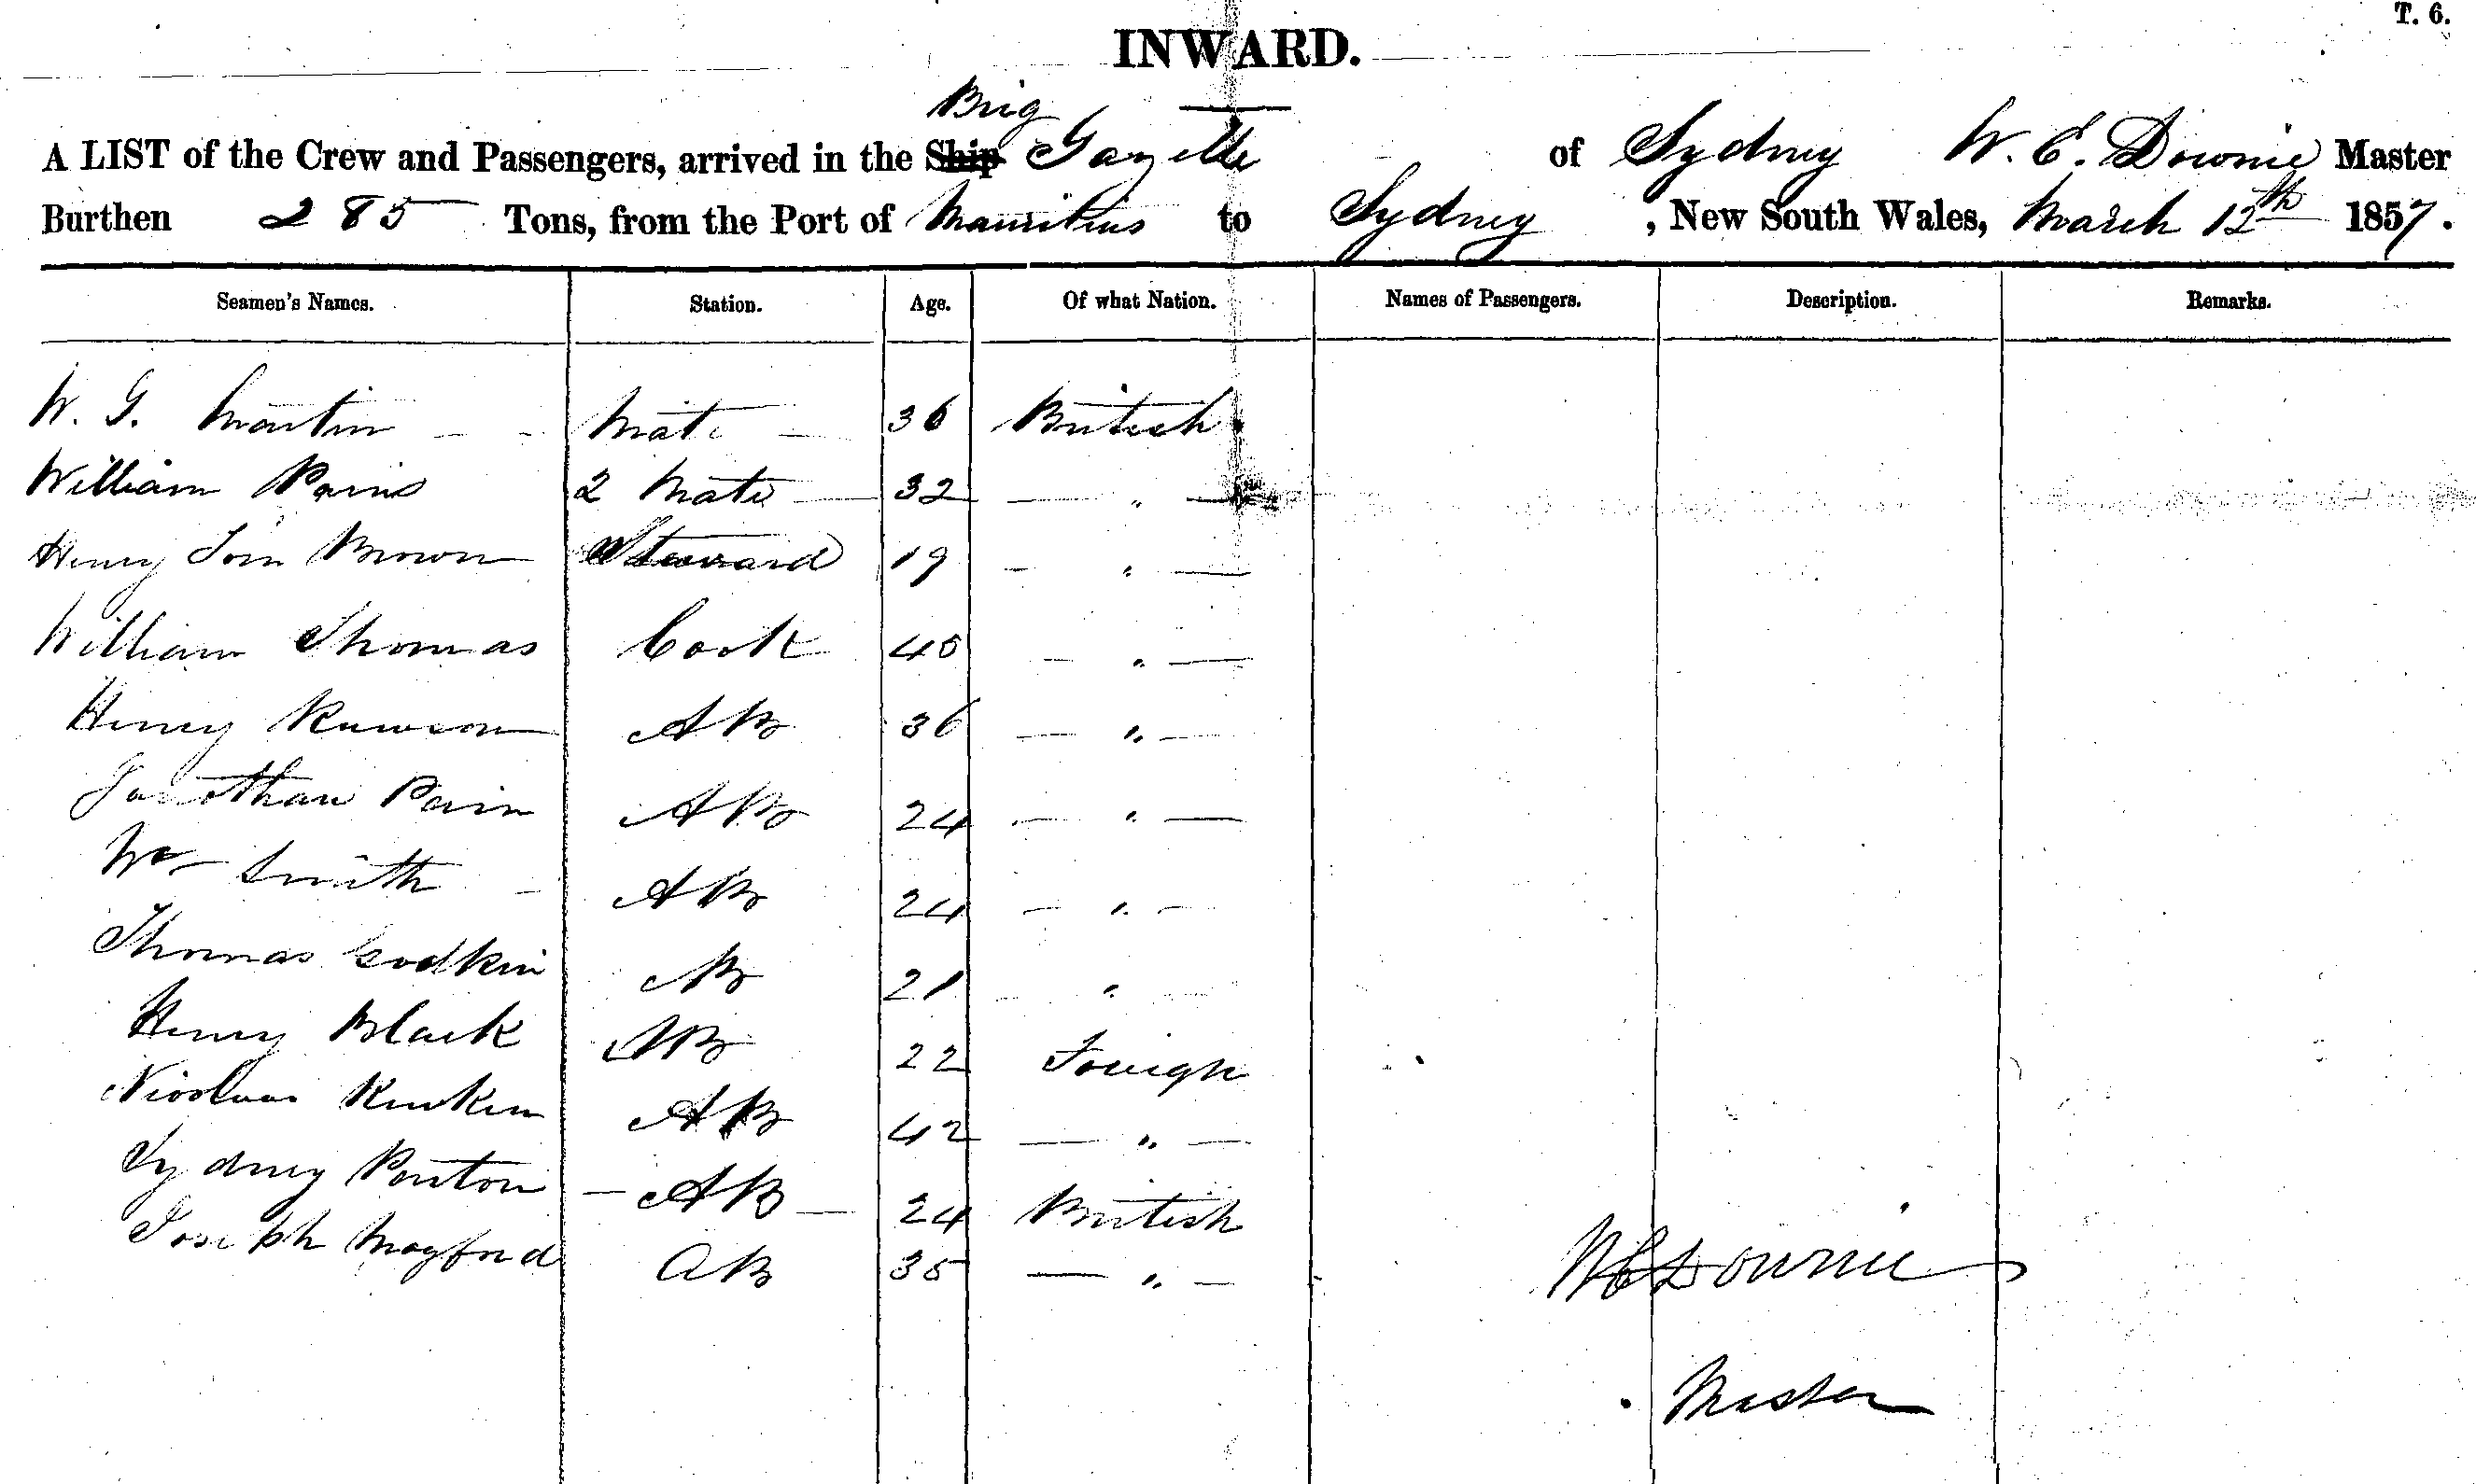 T. 6.
INWARD.
Brig
A LIST of the Crew and Passengers, arrived in the Ship Gazelle of Sydney W. E. Downie Master
Burthen 285 Tons, from the Port of Mauritius to Sydney, New South Wales, March 12th 1857.
Seamen's Names. Station. Age. Of what Nation. Names of Passengers. Description. Remarks.
W. G. Martin - - Mate - 36 British
William 2 Mate - 32 - " -
Henry Tom Brown Steward 19 - " -
William Thomas Cook 45 - " -
Henry Rawson AB 36 - " -
Jonathan Pain AB 24 - " -
Wm Smith - AB 24 - " -
Thomas Godkin AB 21 - " -
Henry Black AB 22 Foreign
AB 42 - " -
Sydney Ponton - AB - 24 British
Joseph Mayford AB 35 - " -
W E Downie
Master